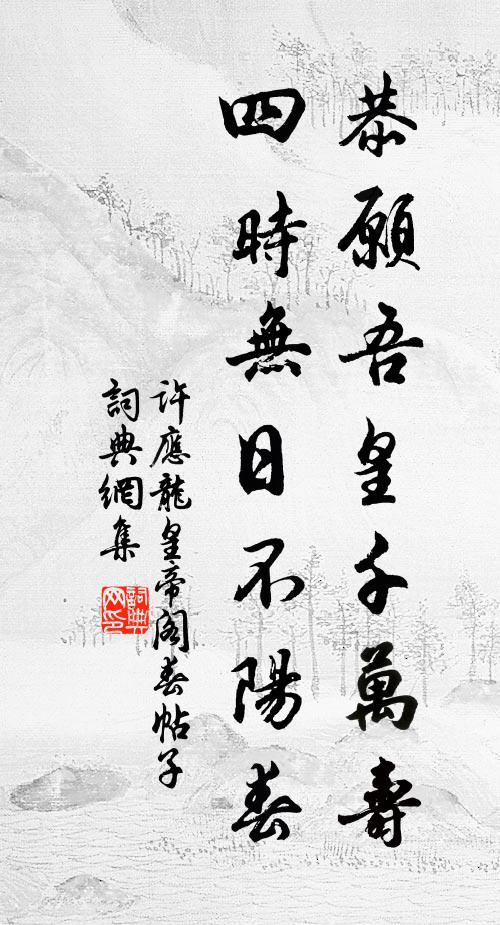 恭願吾皇千萬壽
四時無日不陽春
許應龍皇帝閣春帖子
詞典網集
詞典網印